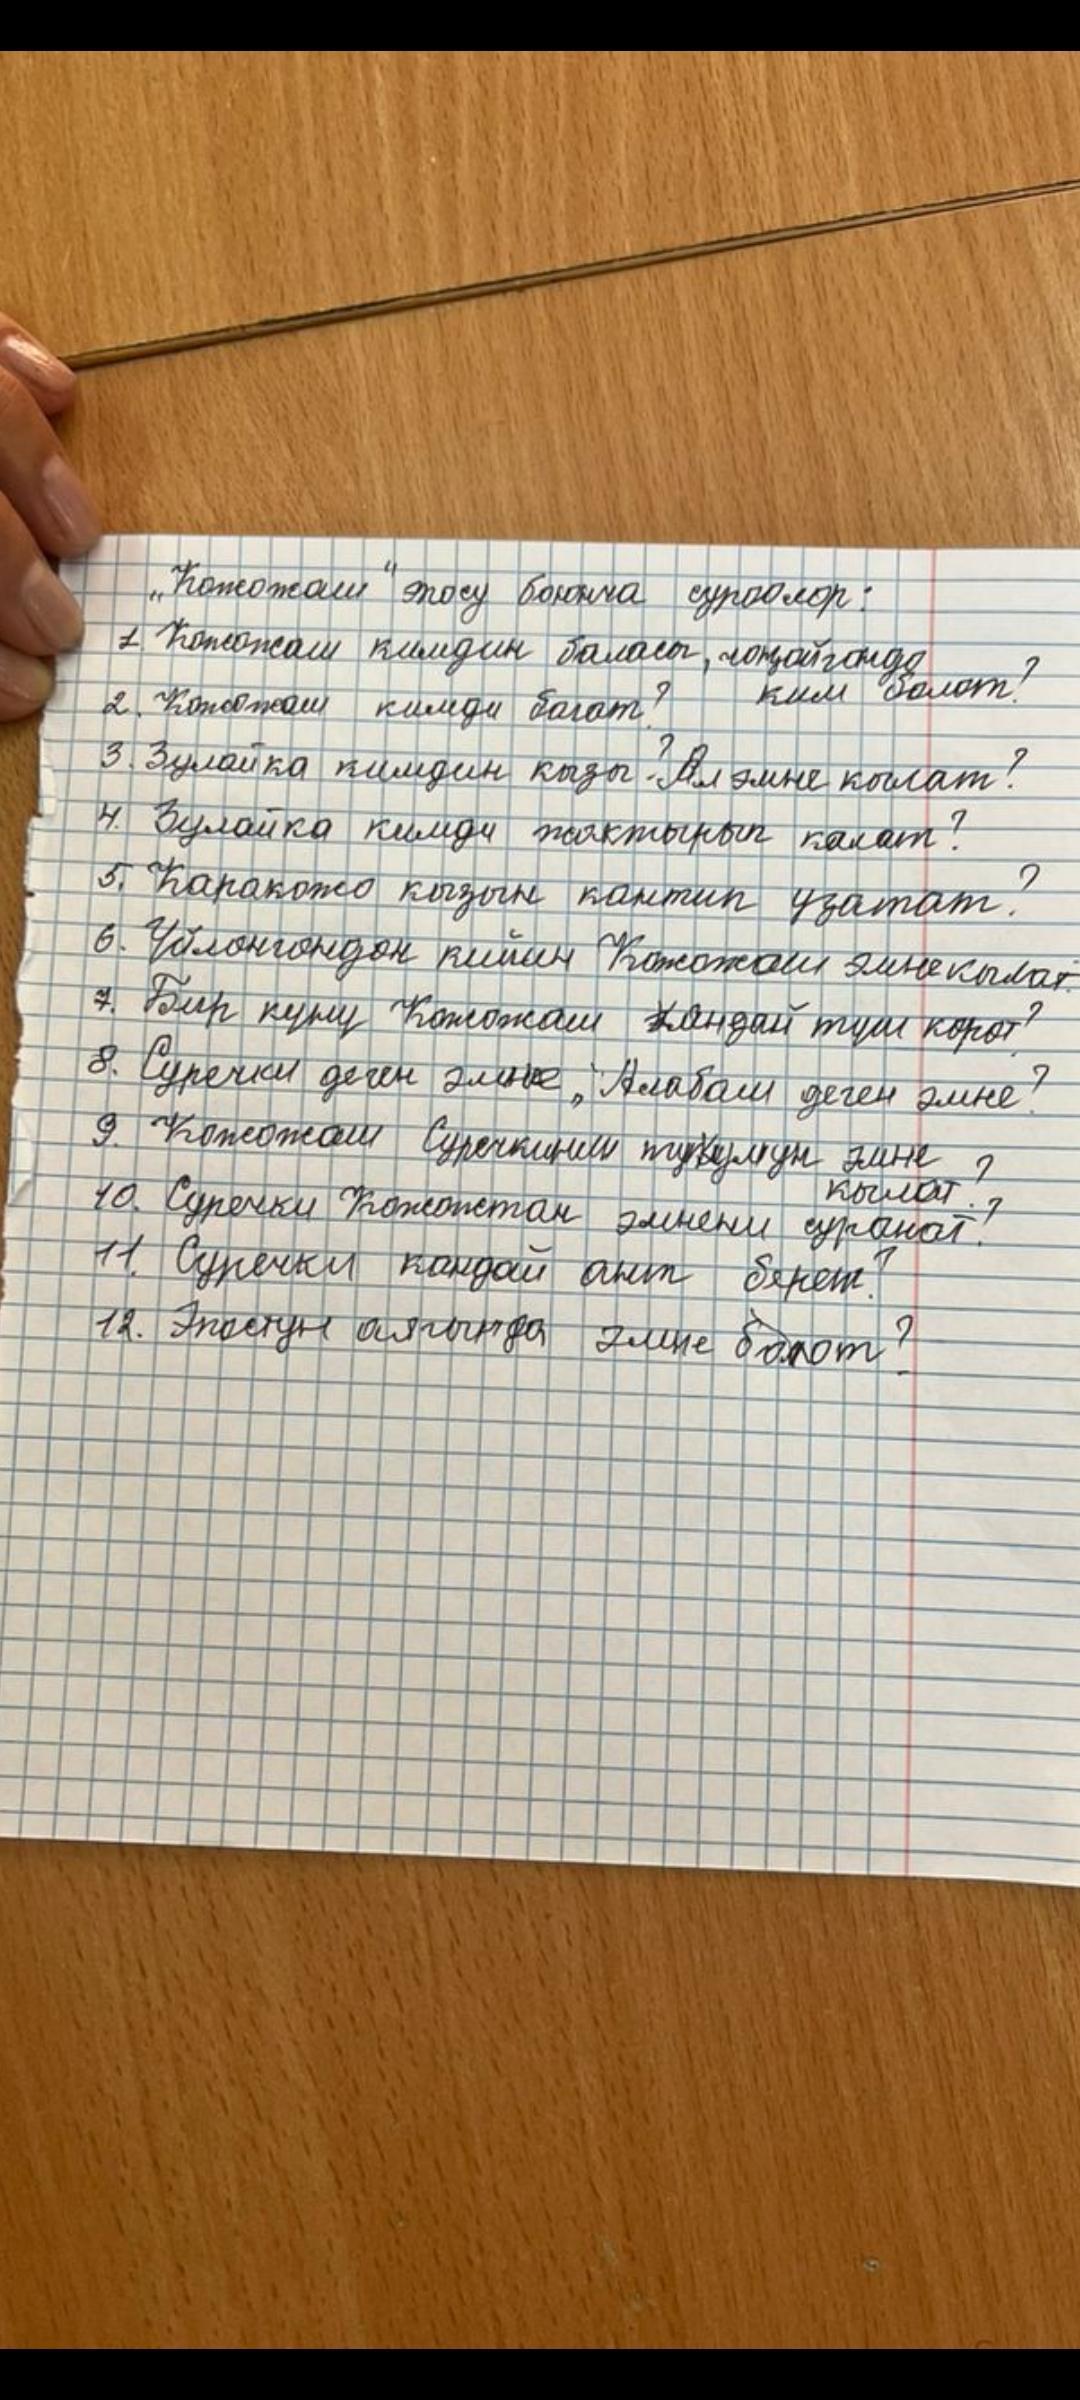 „Кожожаш" эпосу боюнча суроолор:
1. Кожожаш кимдин баласы, чоңойгондо
ким болот?
2. Кожожаш кимди багат?
3. Зулайка кимдин кызы? Ал эмне кылат?
4. Зулайка кимди жактырып калат?
5. Каракожо кызын кантип узатат?
6. Үйлөнгөндөн кийин Кожожаш эмне кылат.
7. Бир күнү Кожожаш кандай түш көрөт?
8. Суречки деген эмне, „Алабаш деген эмне?
9. Кожожаш Суречкинин тукумун эмне
кылат?
10. Суречки Кожожштан эмнени суранат?
11. Суречки кандай ант берет?
12. Эпостун аягында эмне болот?